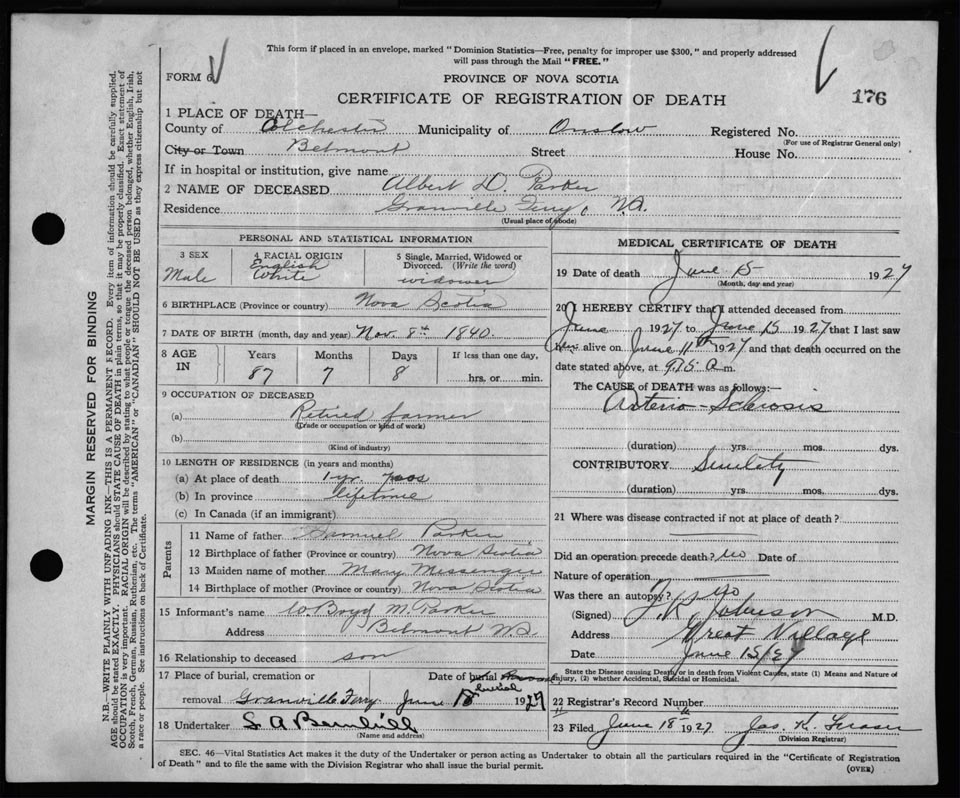 This form if placed in an envelope, marked "Dominion Statistics—Free, penalty for improper use $300," and properly addressed
will pass through the Mail "FREE."
FORM 6
PROVINCE OF NOVA SCOTIA
CERTIFICATE OF REGISTRATION OF DEATH
176
1 PLACE OF DEATH—
County of Colchester Municipality of Onslow Registered No.
(For use of Registrar General only)
City or Town Belmont Street House No.
If in hospital or institution, give name
2 NAME OF DECEASED Albert D. Parker
Residence Granville Ferry, N.S.
(Usual place of abode)
PERSONAL AND STATISTICAL INFORMATION
3 SEX
Male
4 RACIAL ORIGIN
English
White
5 Single, Married, Widowed or
Divorced. (Write the word)
widower
6 BIRTHPLACE (Province or country) Nova Scotia
7 DATE OF BIRTH (month, day and year) Nov. 8th 1840.
8 AGE
IN
Years Months Days If less than one day,
87 7 8 hrs. or min.
9 OCCUPATION OF DECEASED
(a) Retired farmer
(Trade or occupation or kind of work)
(b)
(Kind of industry)
10 LENGTH OF RESIDENCE (in years and months)
(a) At place of death 1 yr.
(b) In province lifetime
(c) In Canada (if an immigrant)
Parents
11 Name of father Samuel Parker
12 Birthplace of father (Province or country) Nova Scotia
13 Maiden name of mother Mary Messenger
14 Birthplace of mother (Province or country) Nova Scotia
15 Informant's name W Boyd M. Parker
Address Belmont N.S.
16 Relationship to deceased son
17 Place of burial, cremation or Date of burial
burial
removal Granville Ferry June 18 1927
18 Undertaker S. A
(Name and address)
MEDICAL CERTIFICATE OF DEATH
19 Date of death June 15 1927
(Month, day and year)
20 I HEREBY CERTIFY that I attended deceased from
June 1927 to June 15 1927 that I last saw
him alive on June 11th 1927 and that death occurred on the
date stated above, at 9.15 a m.
The CAUSE of DEATH was as follows:—
Arterio-Sclerosis
(duration) yrs. mos. dys.
CONTRIBUTORY Senility
(duration) yrs. mos. dys.
21 Where was disease contracted if not at place of death?
Did an operation precede death? no Date of
Nature of operation
Was there an autopsy? no
(Signed) Johnson M.D.
Address Great Village
Date June 15/27
State the Disease causing Death, or in death from Violent Causes, state (1) Means and Nature of
Injury, (2) whether Accidental, Suicidal or Homicidal.
22 Registrar's Record Number
23 Filed June 18th 1927 Jas. K. Fraser
(Division Registrar)
SEC. 46—Vital Statistics Act makes it the duty of the Undertaker or person acting as Undertaker to obtain all the particulars required in the "Certificate of Registration
of Death" and to file the same with the Division Registrar who shall issue the burial permit.
(OVER)
MARGIN RESERVED FOR BINDING
N.B.—WRITE PLAINLY WITH UNFADING INK—THIS IS A PERMANENT RECORD. Every item of information should be carefully supplied.
AGE should be stated EXACTLY. PHYSICIANS should STATE CAUSE OF DEATH in plain terms, so that it may be properly classified. Exact statement of
OCCUPATION is very important. RACIAL ORIGIN will be described by stating to what people or tongue the deceased person belonged, whether English, Irish,
Scotch, French, German, Russian, Ruthenian, etc. The terms "AMERICAN" or "CANADIAN" SHOULD NOT BE USED as they express citizenship but not
a race or people. See instructions on back of Certificate.